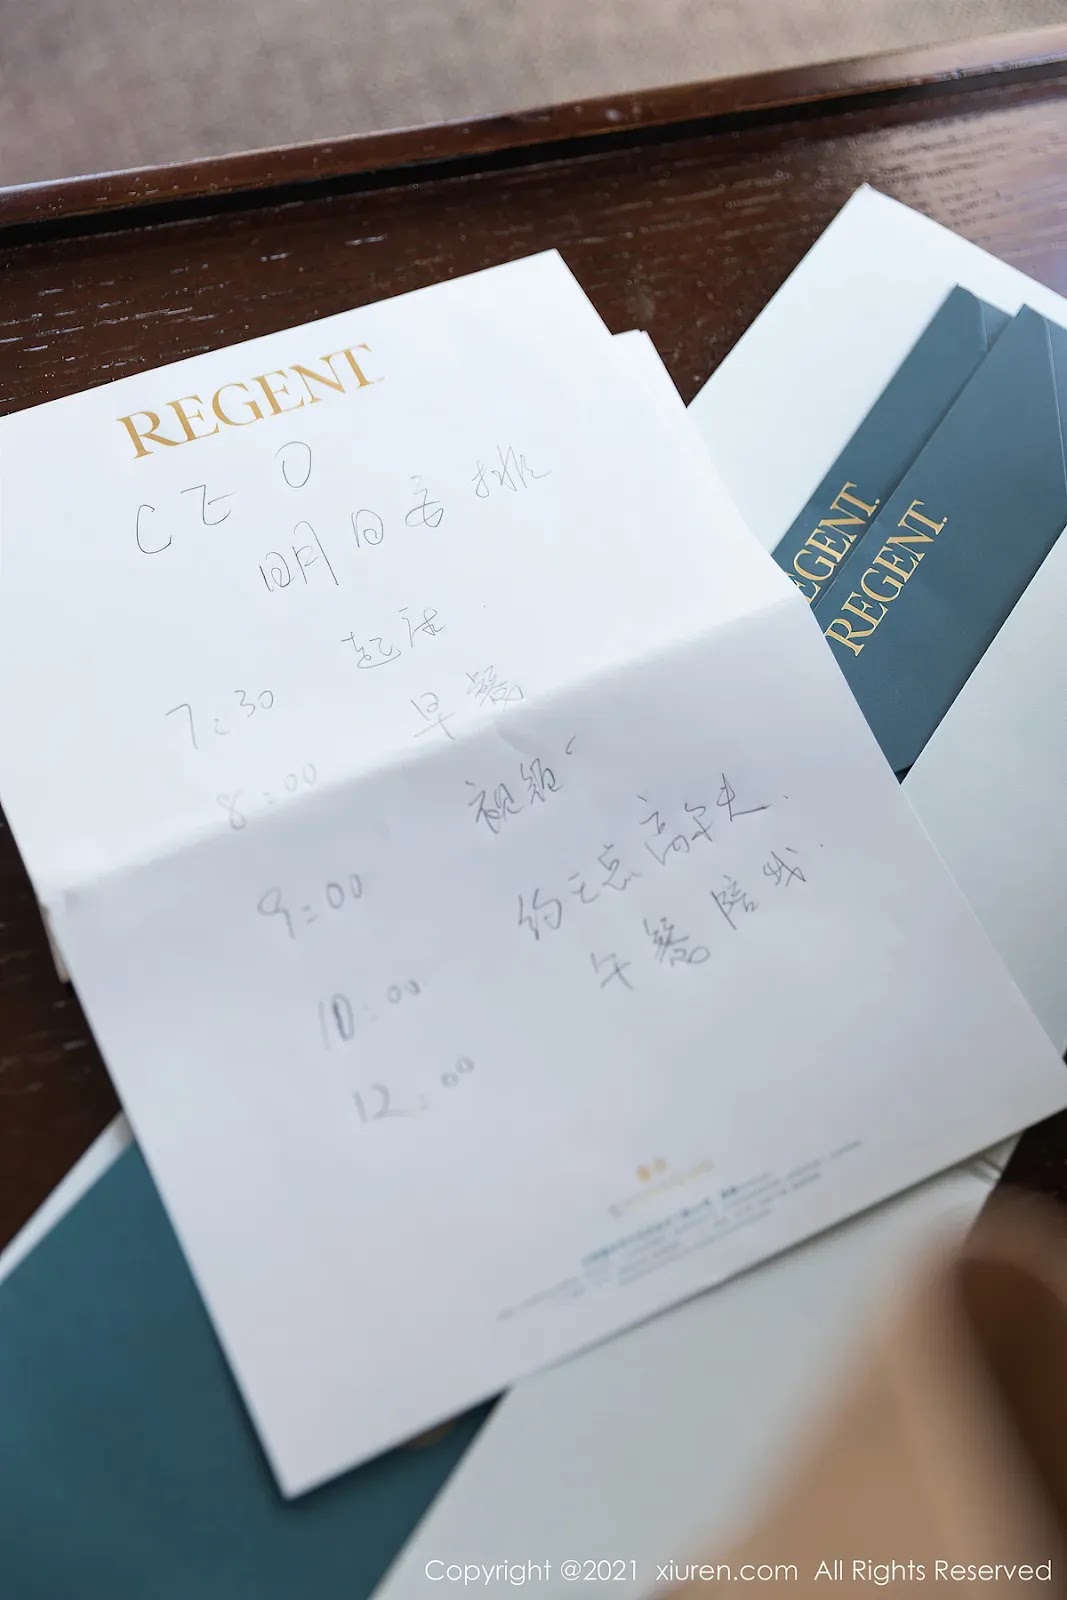 REGENT
CEO
明日安排
7:30 起床
8:00 早餐
9:00 视频
10:00 约王总高尔夫.
12:00 午餐陪我.
REGENT
REGENT
Copyright @2021 xiuren.com All Rights Reserved